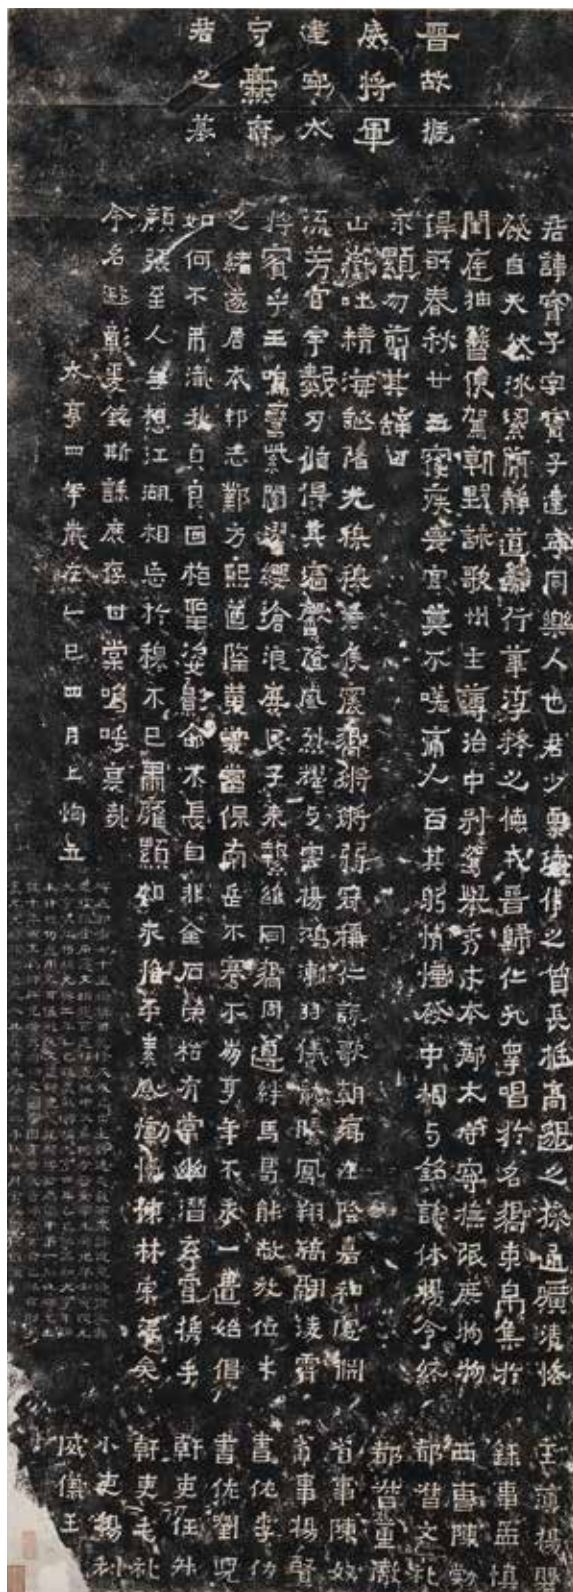 晉故振
威將軍
建寧太
守爨府
君之墓
君諱寶子字寶子建寧同樂人也君少稟瓌偉之質長挺高邈之操通曠清恪
發自天然冰絜簡靜道兼行葦淳粹之德戎晉歸仁九皋唱於名響束帛集於
閨庭抽簪俟駕朝野詠歌州主簿治中別駕舉秀才本郡太守寧撫氓庶物物
得所春秋廿五寢疾喪官莫不嗟痛人百其躬情慟發中相与銘誄休揚令終
永顯勿翦其辭曰
山嶽吐精海誕陲光穆穆君侯震響鏘鏘弱冠稱仁詠歌朝鄉在陰嘉和處淵
流芳宮宇數仞循得其牆馨隨風烈耀与雲揚鴻漸羽儀龍騰鳳翔矯翮凌霄
將賓乎王鳴鸞紫闥濯纓滄浪庶民子來縶維同響周遵絆馬曷能赦放位才
之緒遂居本邦志鄴方熙道隆黃裳當保南岳不騫不崩享年不永一匱始倡
如何不弔殲我貞良回枹聖姿影命不長自非金石榮枯有常幽潛玄穹攜手
顏張至人無想江湖相忘於穆不已肅雍顯相永惟平素感慟忼慨林宗沒矣
令名遐彰爰銘斯誄庶存甘棠嗚呼哀哉
太亨四年歲在乙巳四月上恂立
主簿楊磐
錄事孟慎
西曹陳勃
都督文禮
都督董徹
省事陳奴
省事楊賢
書佐李仂
書佐劉兒
幹吏任升
幹吏毛禮
小吏楊利
威儀王